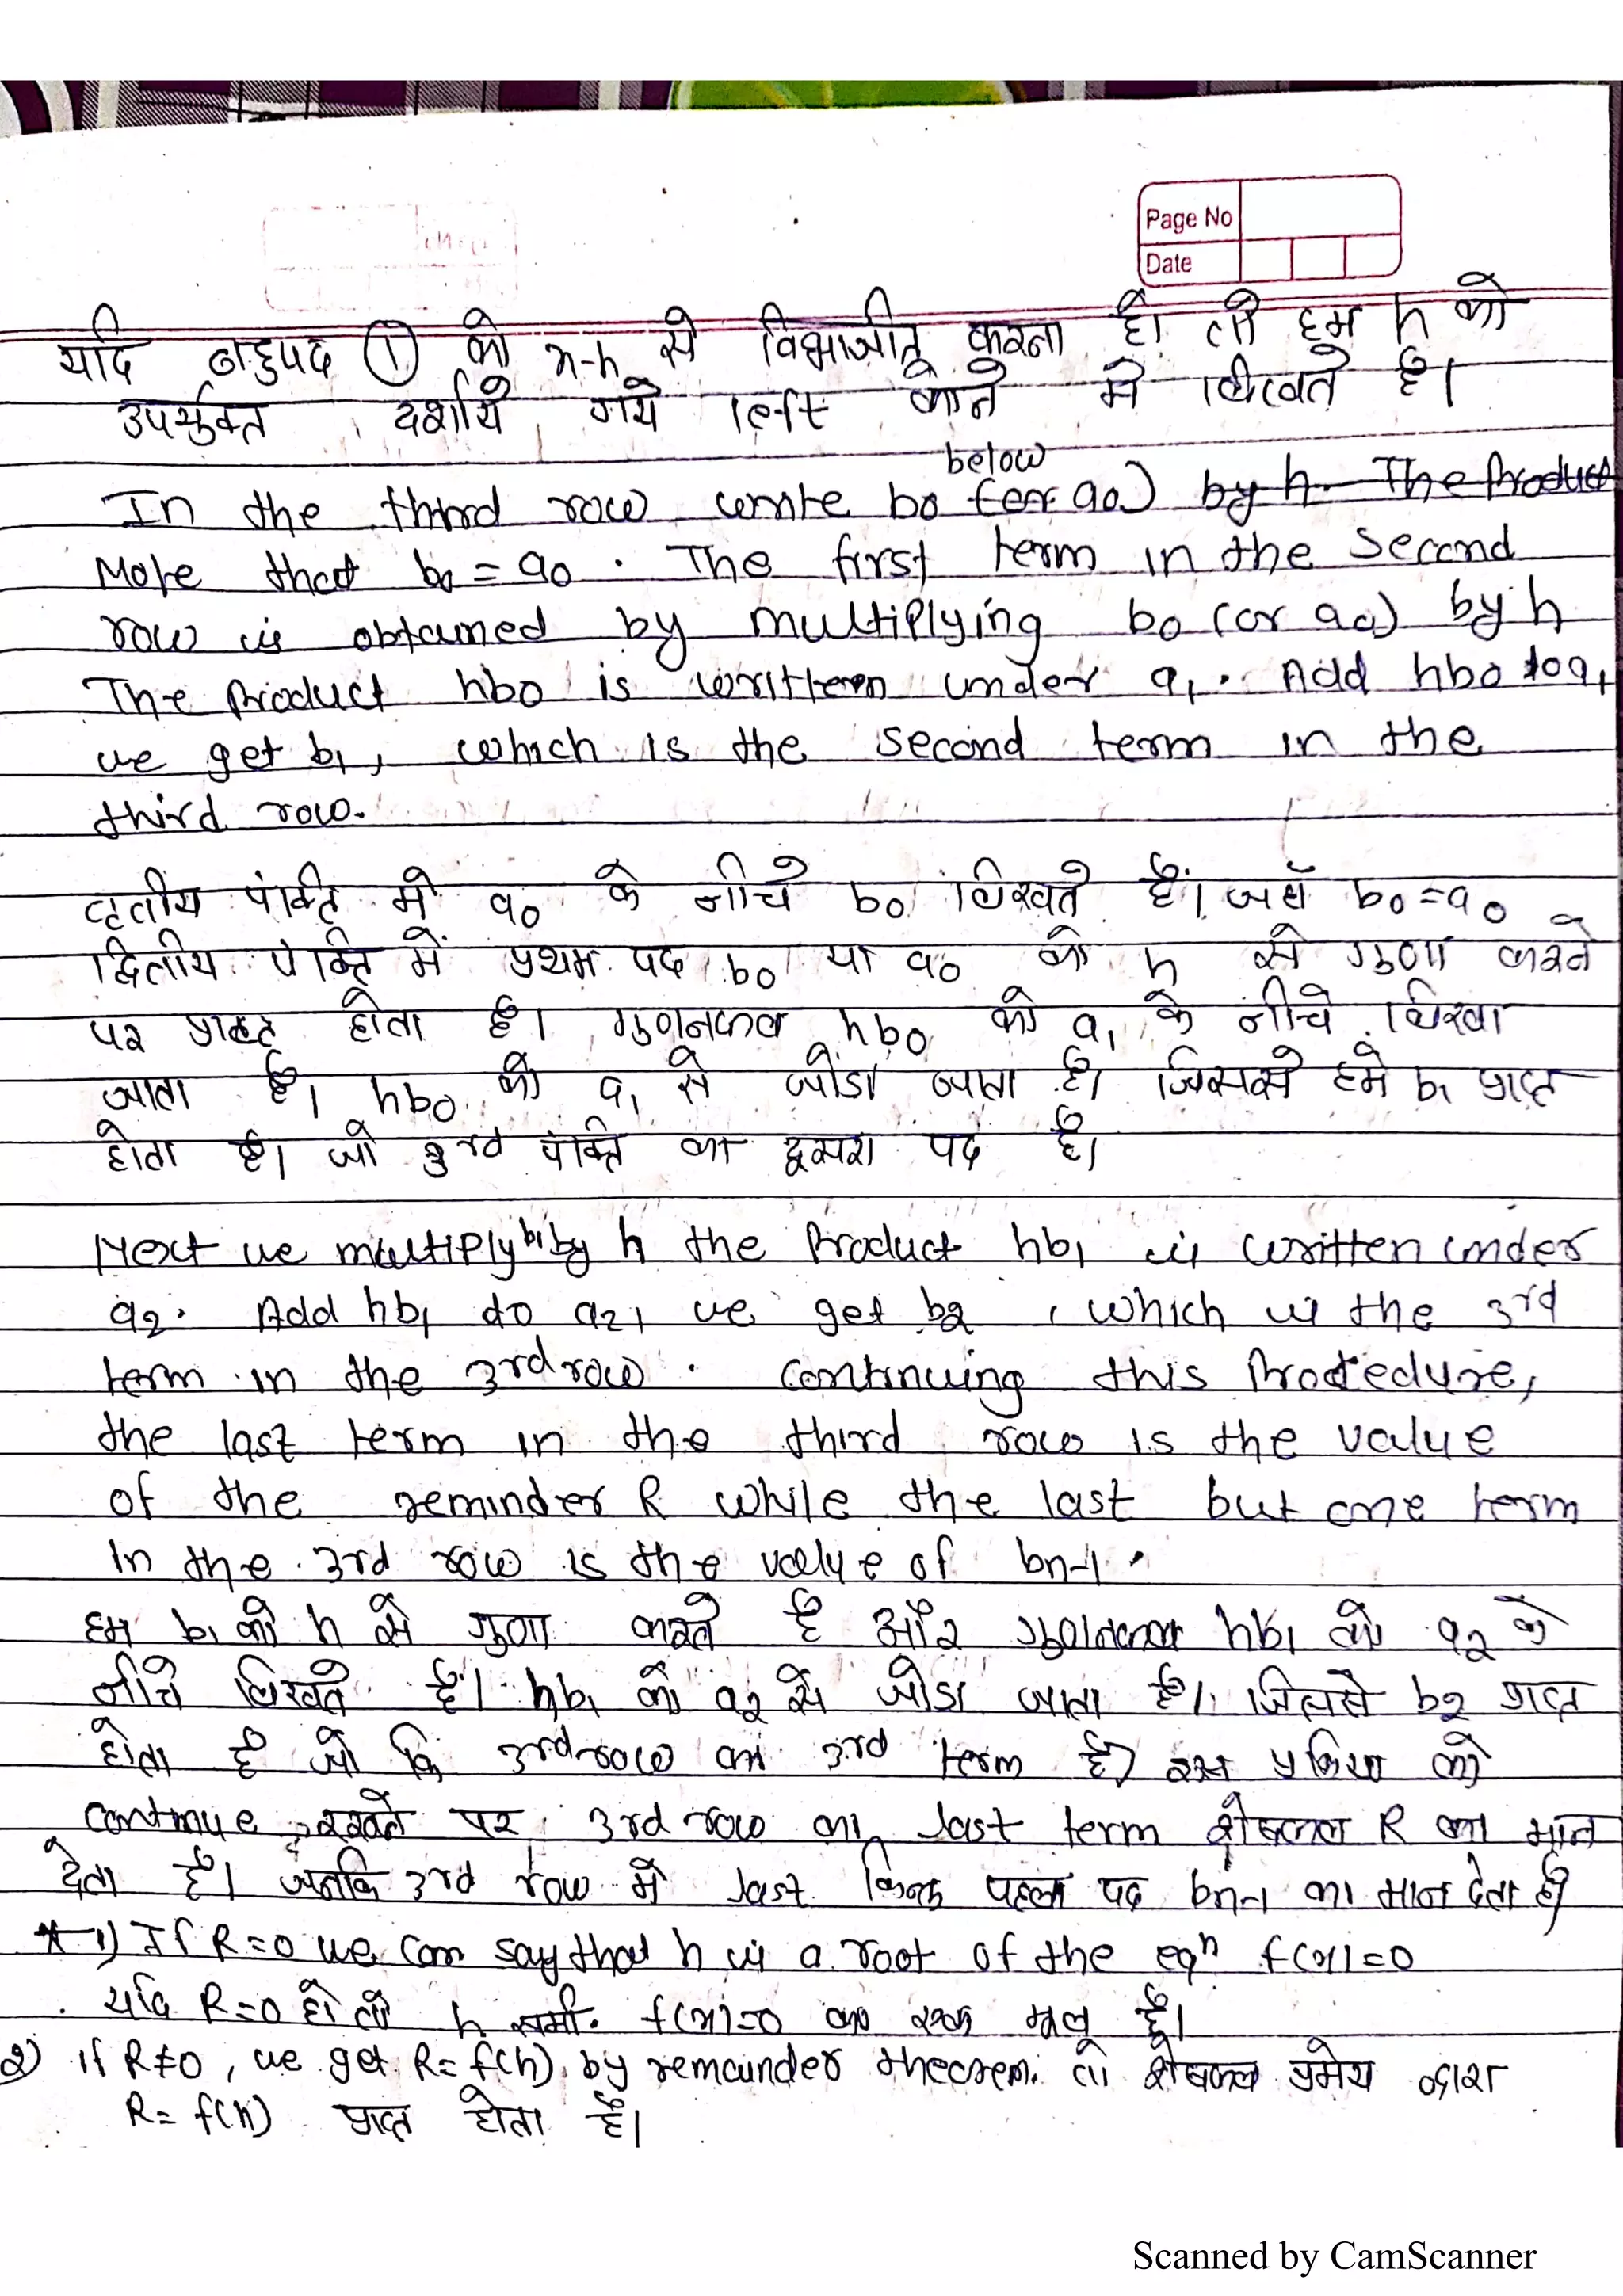 Page No
Date
यदि बहुपद ① को x-h से विभाजीत करना है। तो हम h को
उपर्युक्त दर्शाये गये left कोने मे लिखते है।
below
In the third row write b0 (or a0) by h. The Product
Note that b0 = a0. The first term in the second
row is obtained by multiplying b0 (or a0) by h
The Product hb0 is written under a1. Add hb0 to a1
we get b1, which is the second term in the
third row.
तृतीय पंक्ति में a0 के नीचे b0 लिखते हैं। जहाँ b0 = a0
द्वितीय पंक्ति में प्रथम पद b0 या a0 को h से गुणा करने
पर प्राप्त होता है। गुणनफल hb0 को a1 के नीचे लिखा
जाता है। hb0 को a1 से जोडा जाता है। जिससे हमे b1 प्राप्त
होता है। जो 3rd पंक्ति का दूसरा पद है।
Next we multiply b1 by h the Product hb1 is written under
a2. Add hb1 to a2, we get b2, which is the 3rd
term in the 3rd row. Continuing this Procedure,
the last term in the third row is the value
of the reminder R while the last but one term
in the 3rd row is the value of bn-1.
हम b1 को h से गुणा करते है और गुणनफल hb1 को a2 के
नीचे लिखते है। hb1 को a2 से जोडा जाता है। जिससे b2 प्राप्त
होता है जो कि 3rd row का 3rd term है) इस प्रक्रिया को
continue रखने पर 3rd row का last term शेषफल R का मान
देता है। जबकि 3rd row में last पहला पद bn-1 का मान देता है
* 1) If R=0 we can say that h is a root of the eqn f(x)=0
यदि R=0 हो तो h समी. f(x)=0 का एक मूल है।
2) if R≠0, we get R= f(h) by remainder theorem. तो शेषफल प्रमेय द्वारा
R= f(h) प्राप्त होता है।
Scanned by CamScanner